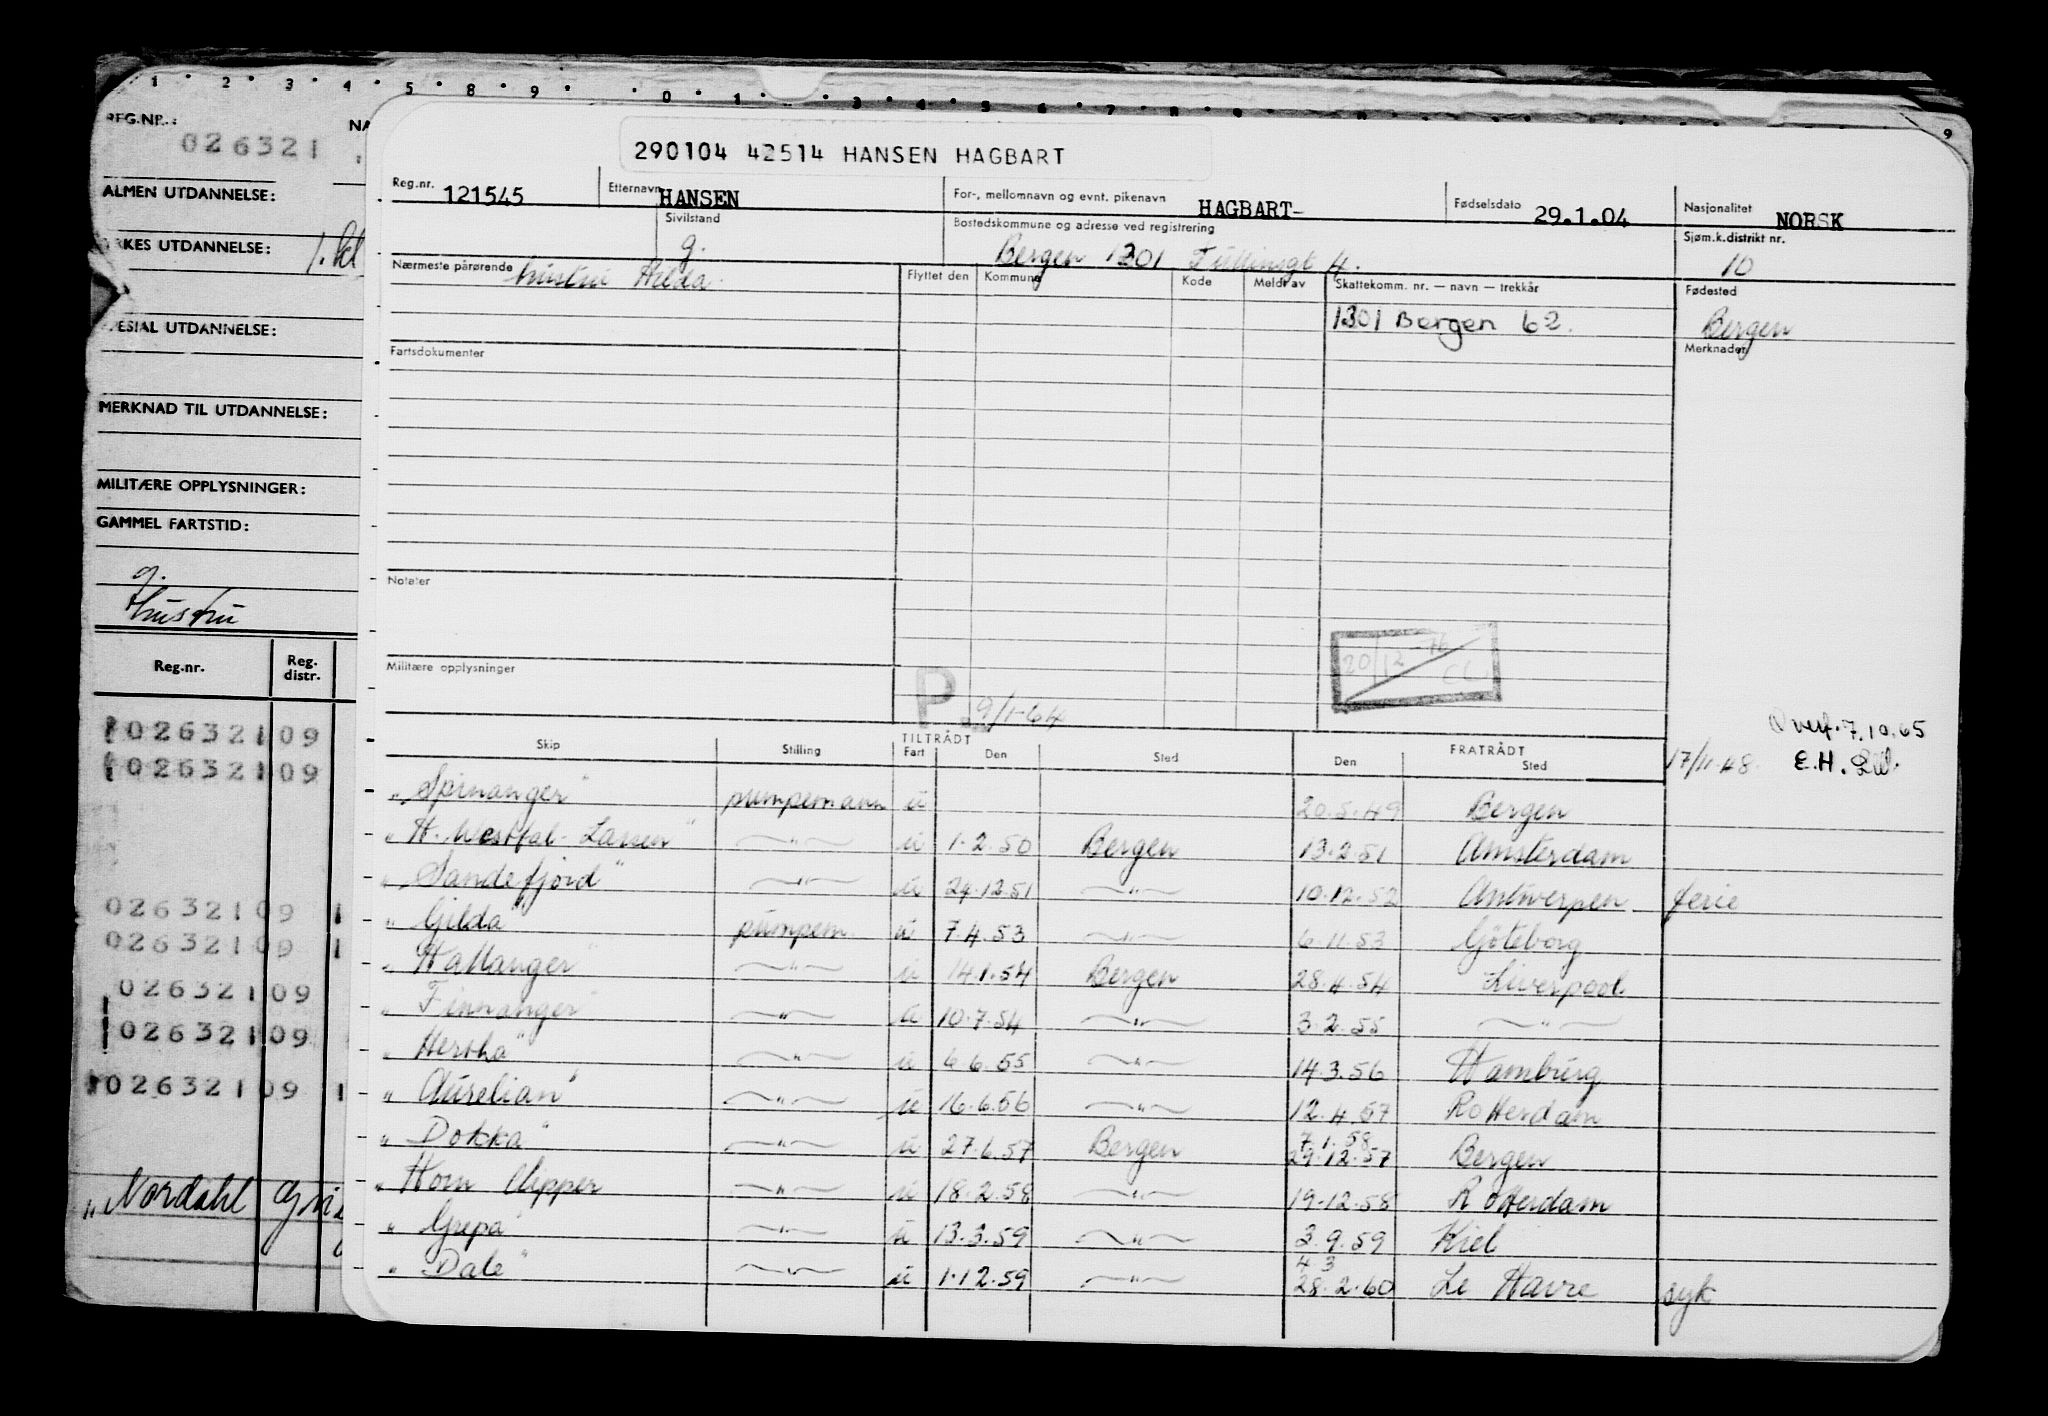 1 2 3 4 5 8 9 0 1 3 4 5 6 7 8 9 9
REG.NR.: NA
026321
ALMEN UTDANNELSE:
RKES UTDANNELSE:
ESIAL UTDANNELSE:
MERKNAD TIL UTDANNELSE:
MILITÆRE OPPLYSNINGER:
GAMMEL FARTSTID:
g.
Hustru
Reg.nr. Reg. distr.
026321 09
026321 09
026321 09 1
026321 09 1
026321 09
026321 09
026321 09 1
"Nordahl Gri
290104 42514 HANSEN HAGBART
Reg.nr. 121545 Etternavn HANSEN For-, mellomnavn og evnt. pikenavn HAGBART- Fødselsdato 29.1.04 Nasjonalitet NORSK
Sivilstand g. Bostedskommune og adresse ved registrering Bergen 1301 4. Sjøm.k.distrikt nr. 10
Nærmeste pårørende hustru Hilda Flyttet den Kommune Kode Meldt av Skattekomm. nr. — navn — trekkår Fødested
1301 Bergen 62. Bergen
Fartsdokumenter Merknader
Notater
20/12-76 CL
Militære opplysninger
P 9/1-64
Overf. 7.10.65
17/11.48. E.H.
TILTRÅDT FRATRÅDT
Skip Stilling Fart Den Sted Den Sted
"Spinanger" pumpemann u 20.5.49 Bergen
"H. Westfal-Larsen" —"— u 1.2.50 Bergen 13.2.51 Amsterdam
"Sandefjord" —"— u 24.12.51 —"— 10.12.52 Antwerpen ferie
"Gilda" pumpem. u 7.4.53 —"— 6.11.53 Göteborg
"Hallanger" —"— u 14.1.54 Bergen 28.4.54 Liverpool
"Finnanger" —"— u 10.7.54 —"— 3.2.55 —"—
"Hertha" —"— u 6.6.55 —"— 14.3.56 Hamburg
"Aurelian" —"— u 16.6.56 —"— 12.4.57 Rotterdam
7.1.58
"Dokka" —"— u 27.6.57 Bergen 29.12.57 Bergen
"Horn Clipper —"— u 18.2.58 —"— 19.12.58 Rotterdam
"Grepa" —"— u 13.3.59 —"— 3.9.59 Kiel
4 3
"Dale" —"— u 1.12.59 —"— 28.2.60 Le Havre syk